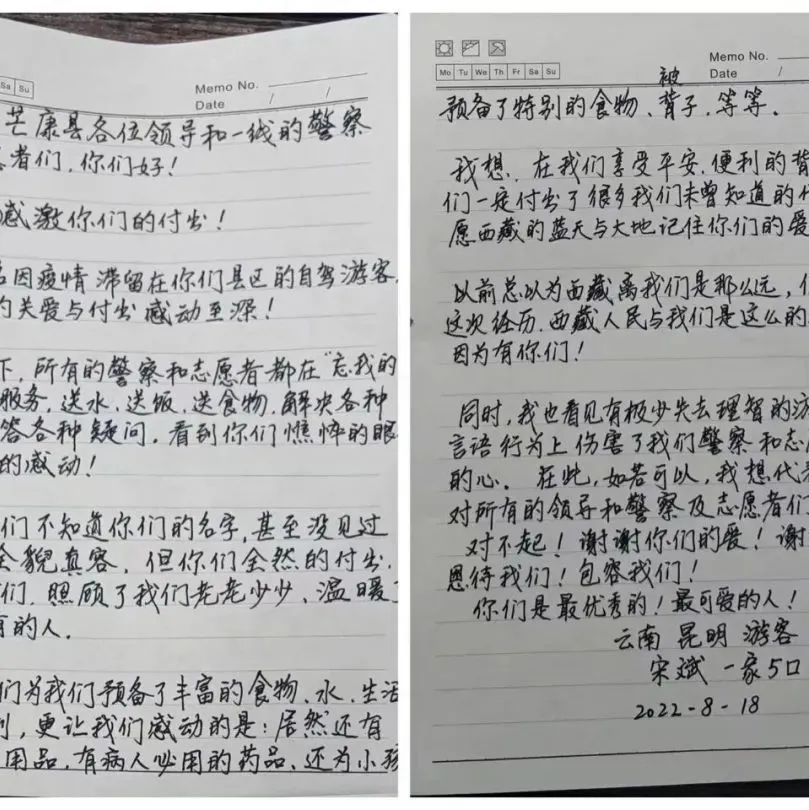 Sa Su
Memo No.
Date / /
芒康县各位领导和一线的警察
者们,你们好!
感激你们的付出!
因疫情滞留在你们县区的自驾游客,
关爱与付出感动至深!
下,所有的警察和志愿者都在“忘我的
服务,送水,送饭,送食物,解决各种
答各种疑问,看到你们憔悴的眼
的感动!
们不知道你们的名字,甚至没见过
全貌真容,但你们全然的付出,
们,照顾了我们老老少少、温暖了
的人.
们为我们预备了丰富的食物、水、生活
,更让我们感动的是:居然还有
用品,有病人必用的药品、还为小孩
Mo Tu We Th Fr Sa Su
Memo No.
Date /
预备了特别的食物、被背子,等等.
我想,在我们享受平安,便利的背
们一定付出了很多我们未曾知道的代
愿西藏的蓝天与大地记住你们的爱
以前总以为西藏离我们是那么远,但
这次经历,西藏人民与我们是这么的
因为有你们!
同时,我也看见有极少失去理智的游
言语行为上伤害了我们警察和志愿
的心。在此,如若可以,我想代
对所有的领导和警察及志愿者们
对不起!谢谢你们的爱!谢
恩待我们!包容我们!
你们是最优秀的!最可爱的人!
云南 昆明 游客
宋斌 一家5口
2022-8-18